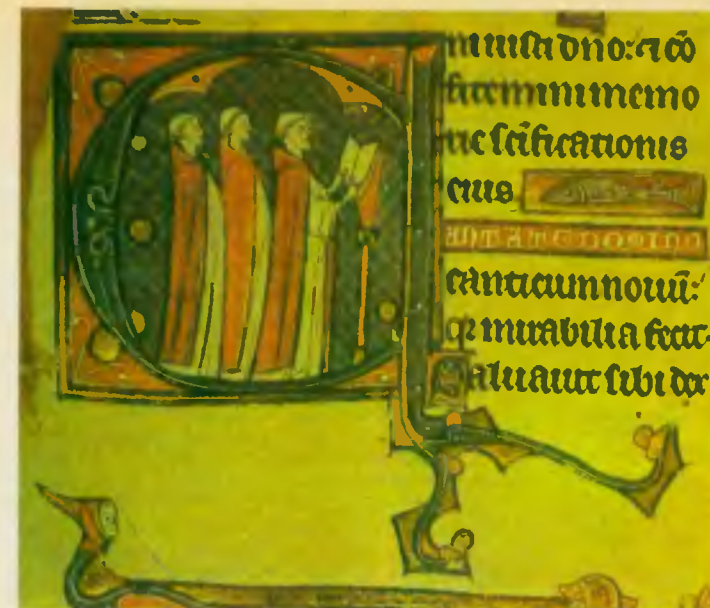 iusti dño: ⁊ cō
fitemini memo
rie scīficationis
eius
ANTATE DOMINO
canticum nouū:
qr mirabilia fecit.
Saluauit sibi dex